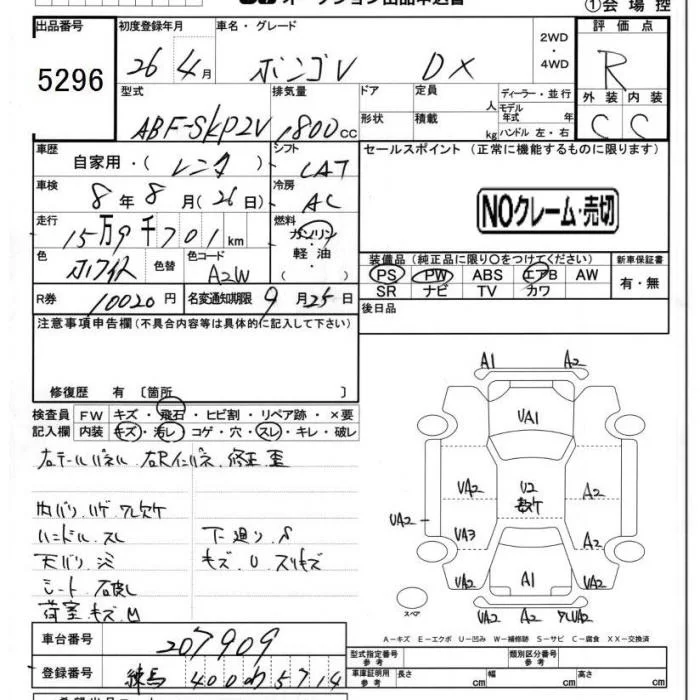 オークション出品申込書
①会場控
出品番号 5296
初度登録年月 26年4月
車名・グレード ボンゴV DX
2WD・4WD
評価点 R
外装 C 内装 C
型式 ABF-SKP2V
排気量 1,800cc
ドア 形状
定員 人
積載 kg
ディーラー・並行
モデル年式 年
ハンドル 左・右
車歴 自家用・(レンタ)
シフト CAT
セールスポイント (正常に機能するものに限ります)
車検 8年8月(26日)
冷房 AC
NOクレーム・売切
走行 15万9千701km
燃料 ガソリン・軽油・( )
色 ホワイト 色替
色コード A2W
装備品 (純正品に限り○をつけてください)
PS PW ABS エアB AW
SR ナビ TV カワ
新車保証書 有・無
R券 10020円
名変通知期限 9月25日
後日品
注意事項申告欄(不具合内容等は具体的に記入して下さい)
修復歴 有 〔箇所 〕
検査員記入欄
FW キズ・飛石・ヒビ割・リペア跡・×要
内装 キズ・汚レ・コゲ・穴・スレ・キレ・破レ
右テールパネル 右Rインパネ 修正 歪
内バリ ハゲ ワレ欠ケ
ハンドル スレ
天バリ シミ
シート 右破レ
荷室 キズ 凹
下廻り S
キズ U スリキズ
A1 A2
UA1
UA2 U2 A2
UA2 UA3 A2
UA2 A1 UA2
スペア
UA2 A2 ワレUA2
A-キズ E-エクボ U-凹み W-補修跡 S-サビ C-腐食 XX-交換済
車台番号 207909
登録番号 練馬 400 わ 5714
型式指定番号 参考
類別区分番号 参考
車庫証明用 参考 長さ cm 幅 cm 高さ cm